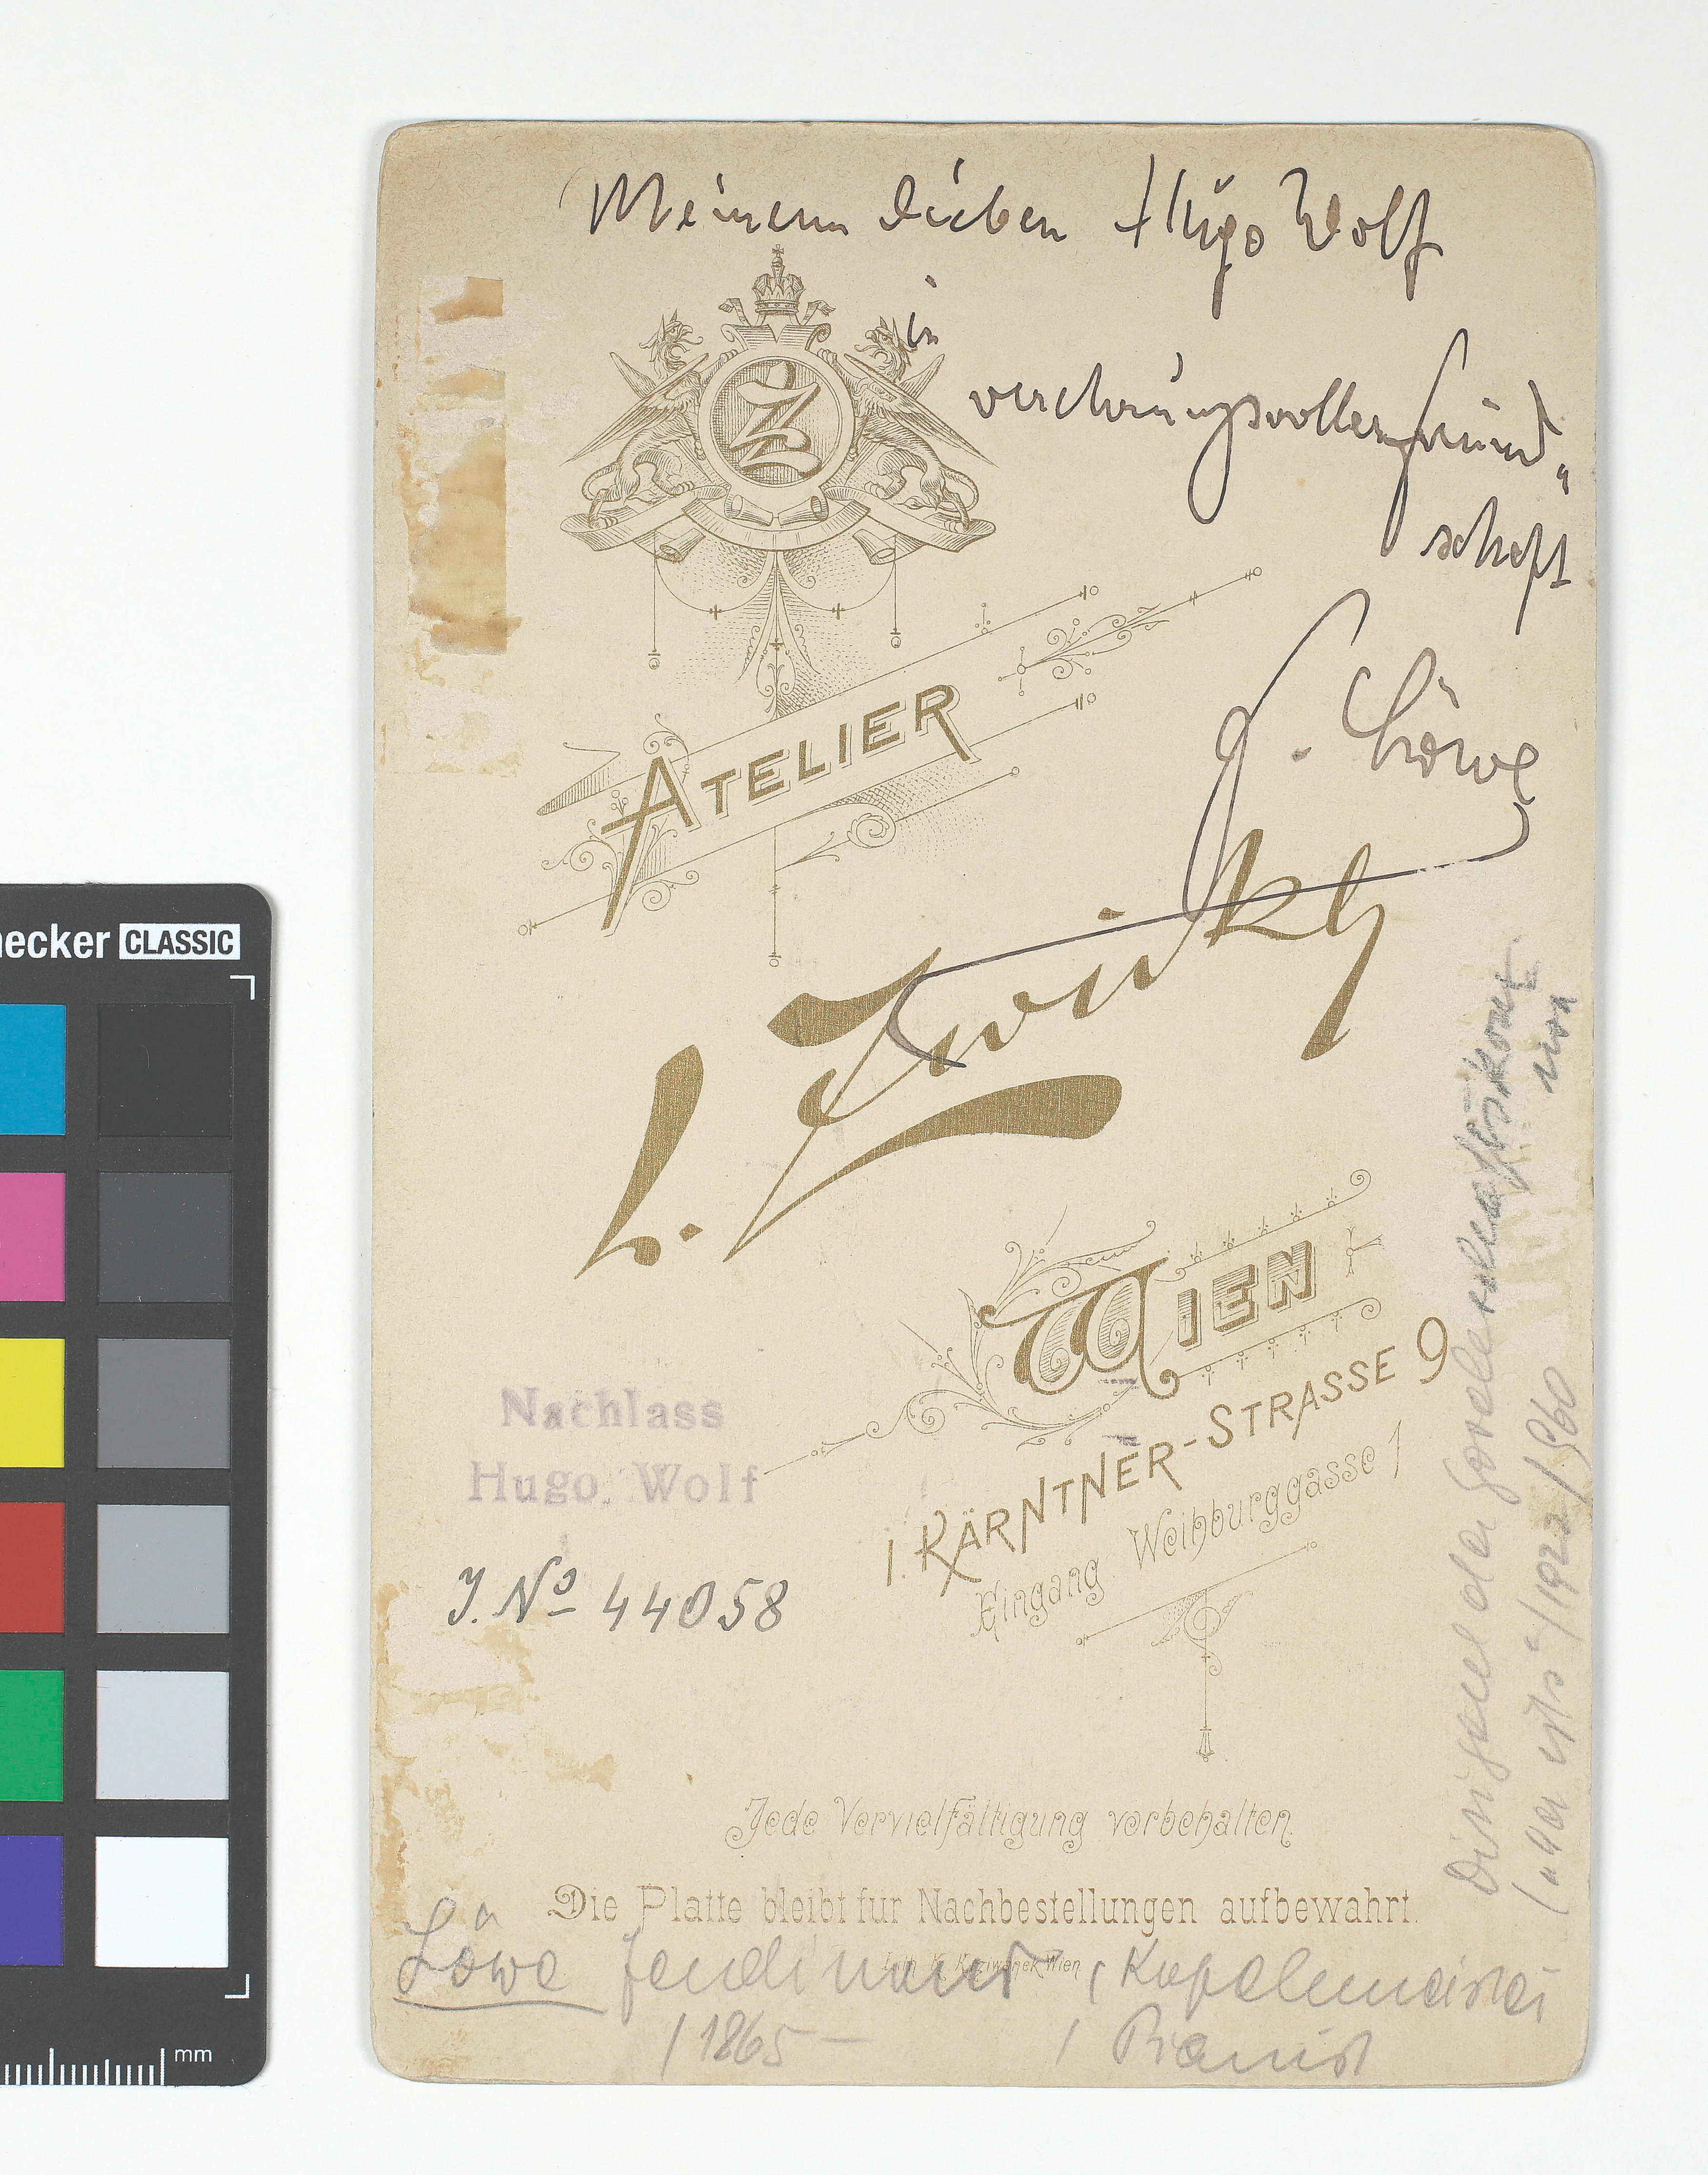 Meinem lieben Hugo Wolf
in
verehrungsvoller Freund„
schaft
F. Löwe
Z
ATELIER
L. Zwirky
WIEN
I. KÄRNTNER-STRASSE 9
Eingang Weihburggasse 1
Nachlass
Hugo Wolf
J. No 44058
Jede Vervielfältigung vorbehalten.
Die Platte bleibt für Nachbestellungen aufbewahrt.
Lith. K. Wien
Löwe Ferdinand, Kapellmeister
/ 1865 – / Pianist
Dirigent der Gesellschaftskonz.
/1922/560
necker CLASSIC
mm